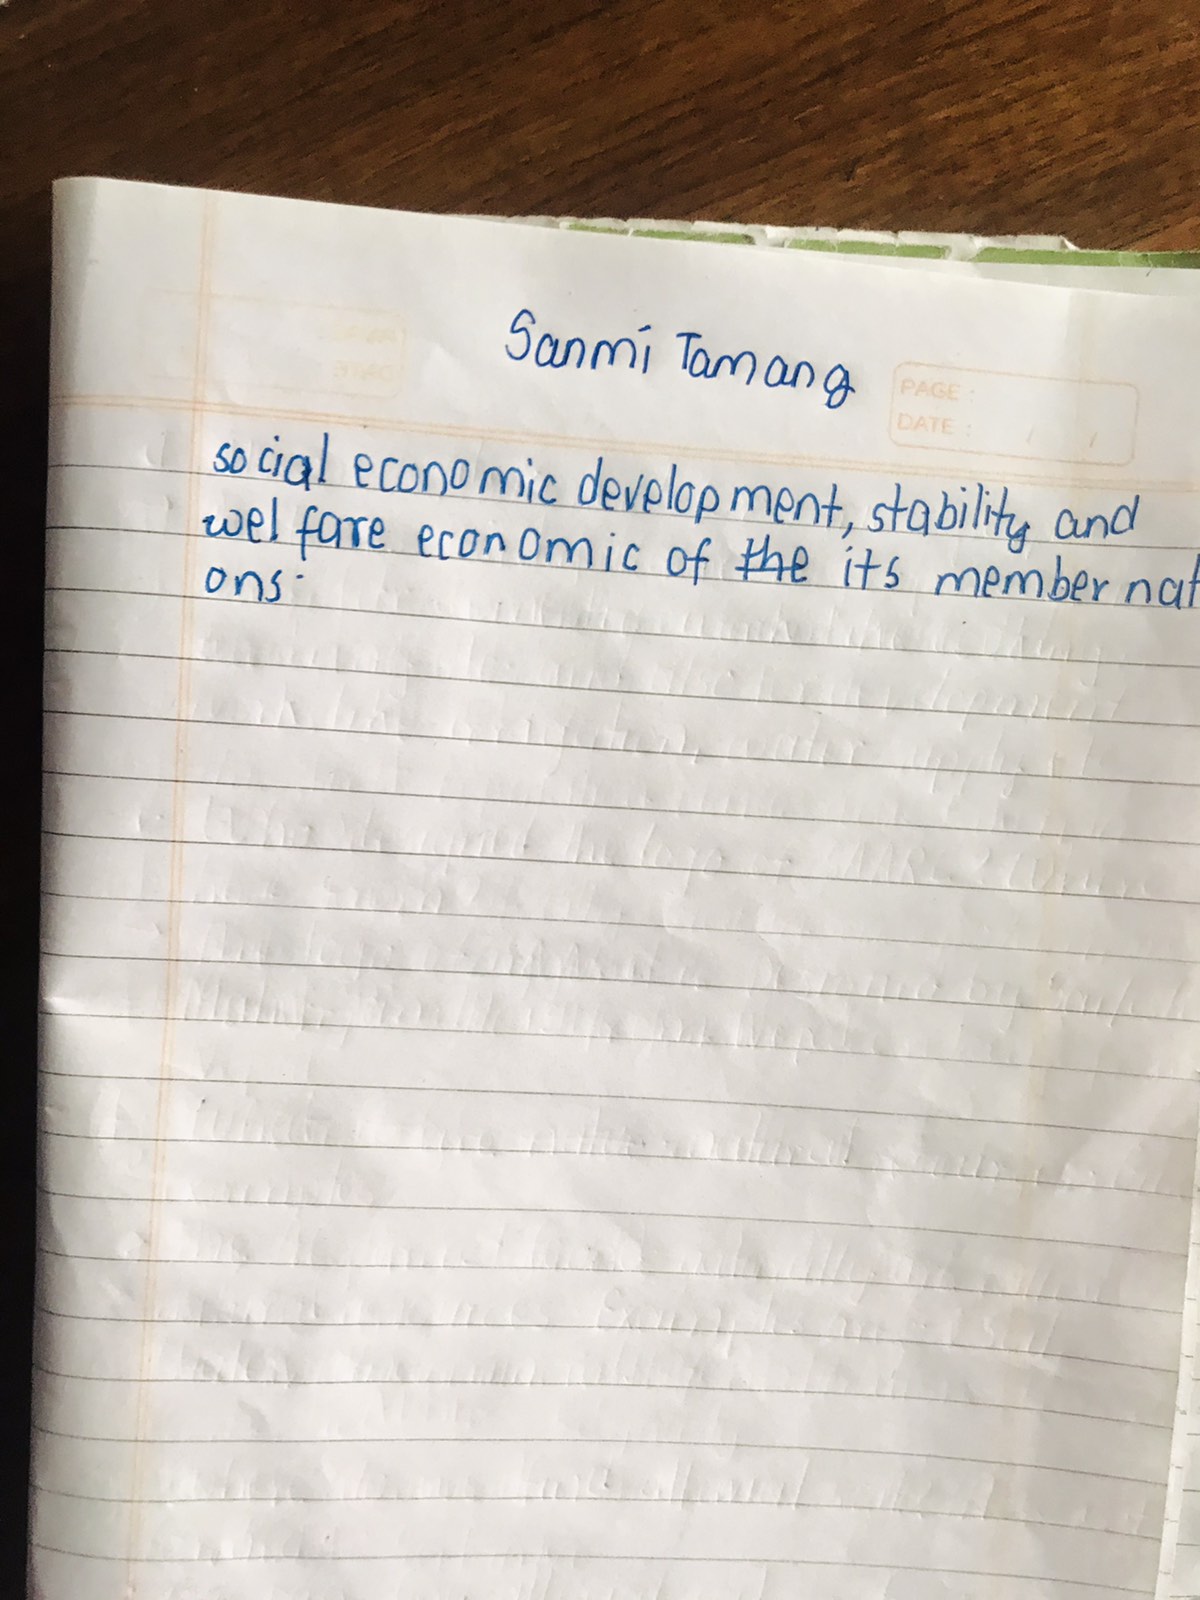 Sanmi Tamang
PAGE :
DATE : / /
social economic development, stability and
welfare economic of the its member nat
ons.